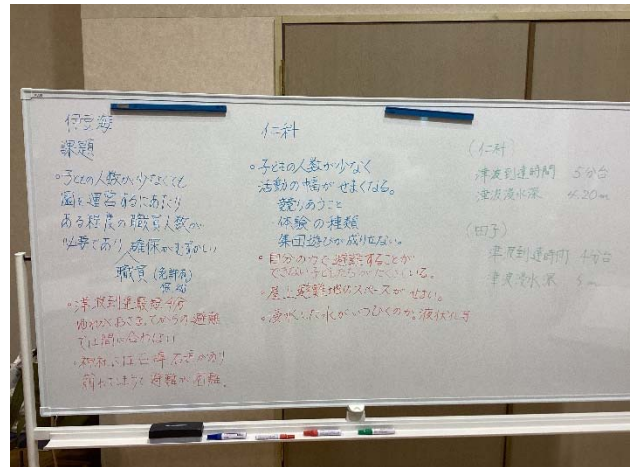 伊豆海
課題
・子どもの人数が少なくても
園を運営するにあたり
ある程度の職員人数が
必要であり 確保がむずかしい
職員(免許有)
・津波到達最短4分
ゆれがおさまってからの避難
では間に合わない
避難が困難。
仁科
・子どもの人数が少なく
活動の幅がせまくなる。
競りあうこと
体験の種類
集団遊びが成り立たない。
・自分の力で避難することが
できない子どもたちがたくさんいる。
避難地のスペースがせまい。
水がいつひくのか。液状化
(仁科)
津波到達時間 5分台
津波浸水深 4.20m
(田子)
津波到達時間 4分台
津波浸水深 5m